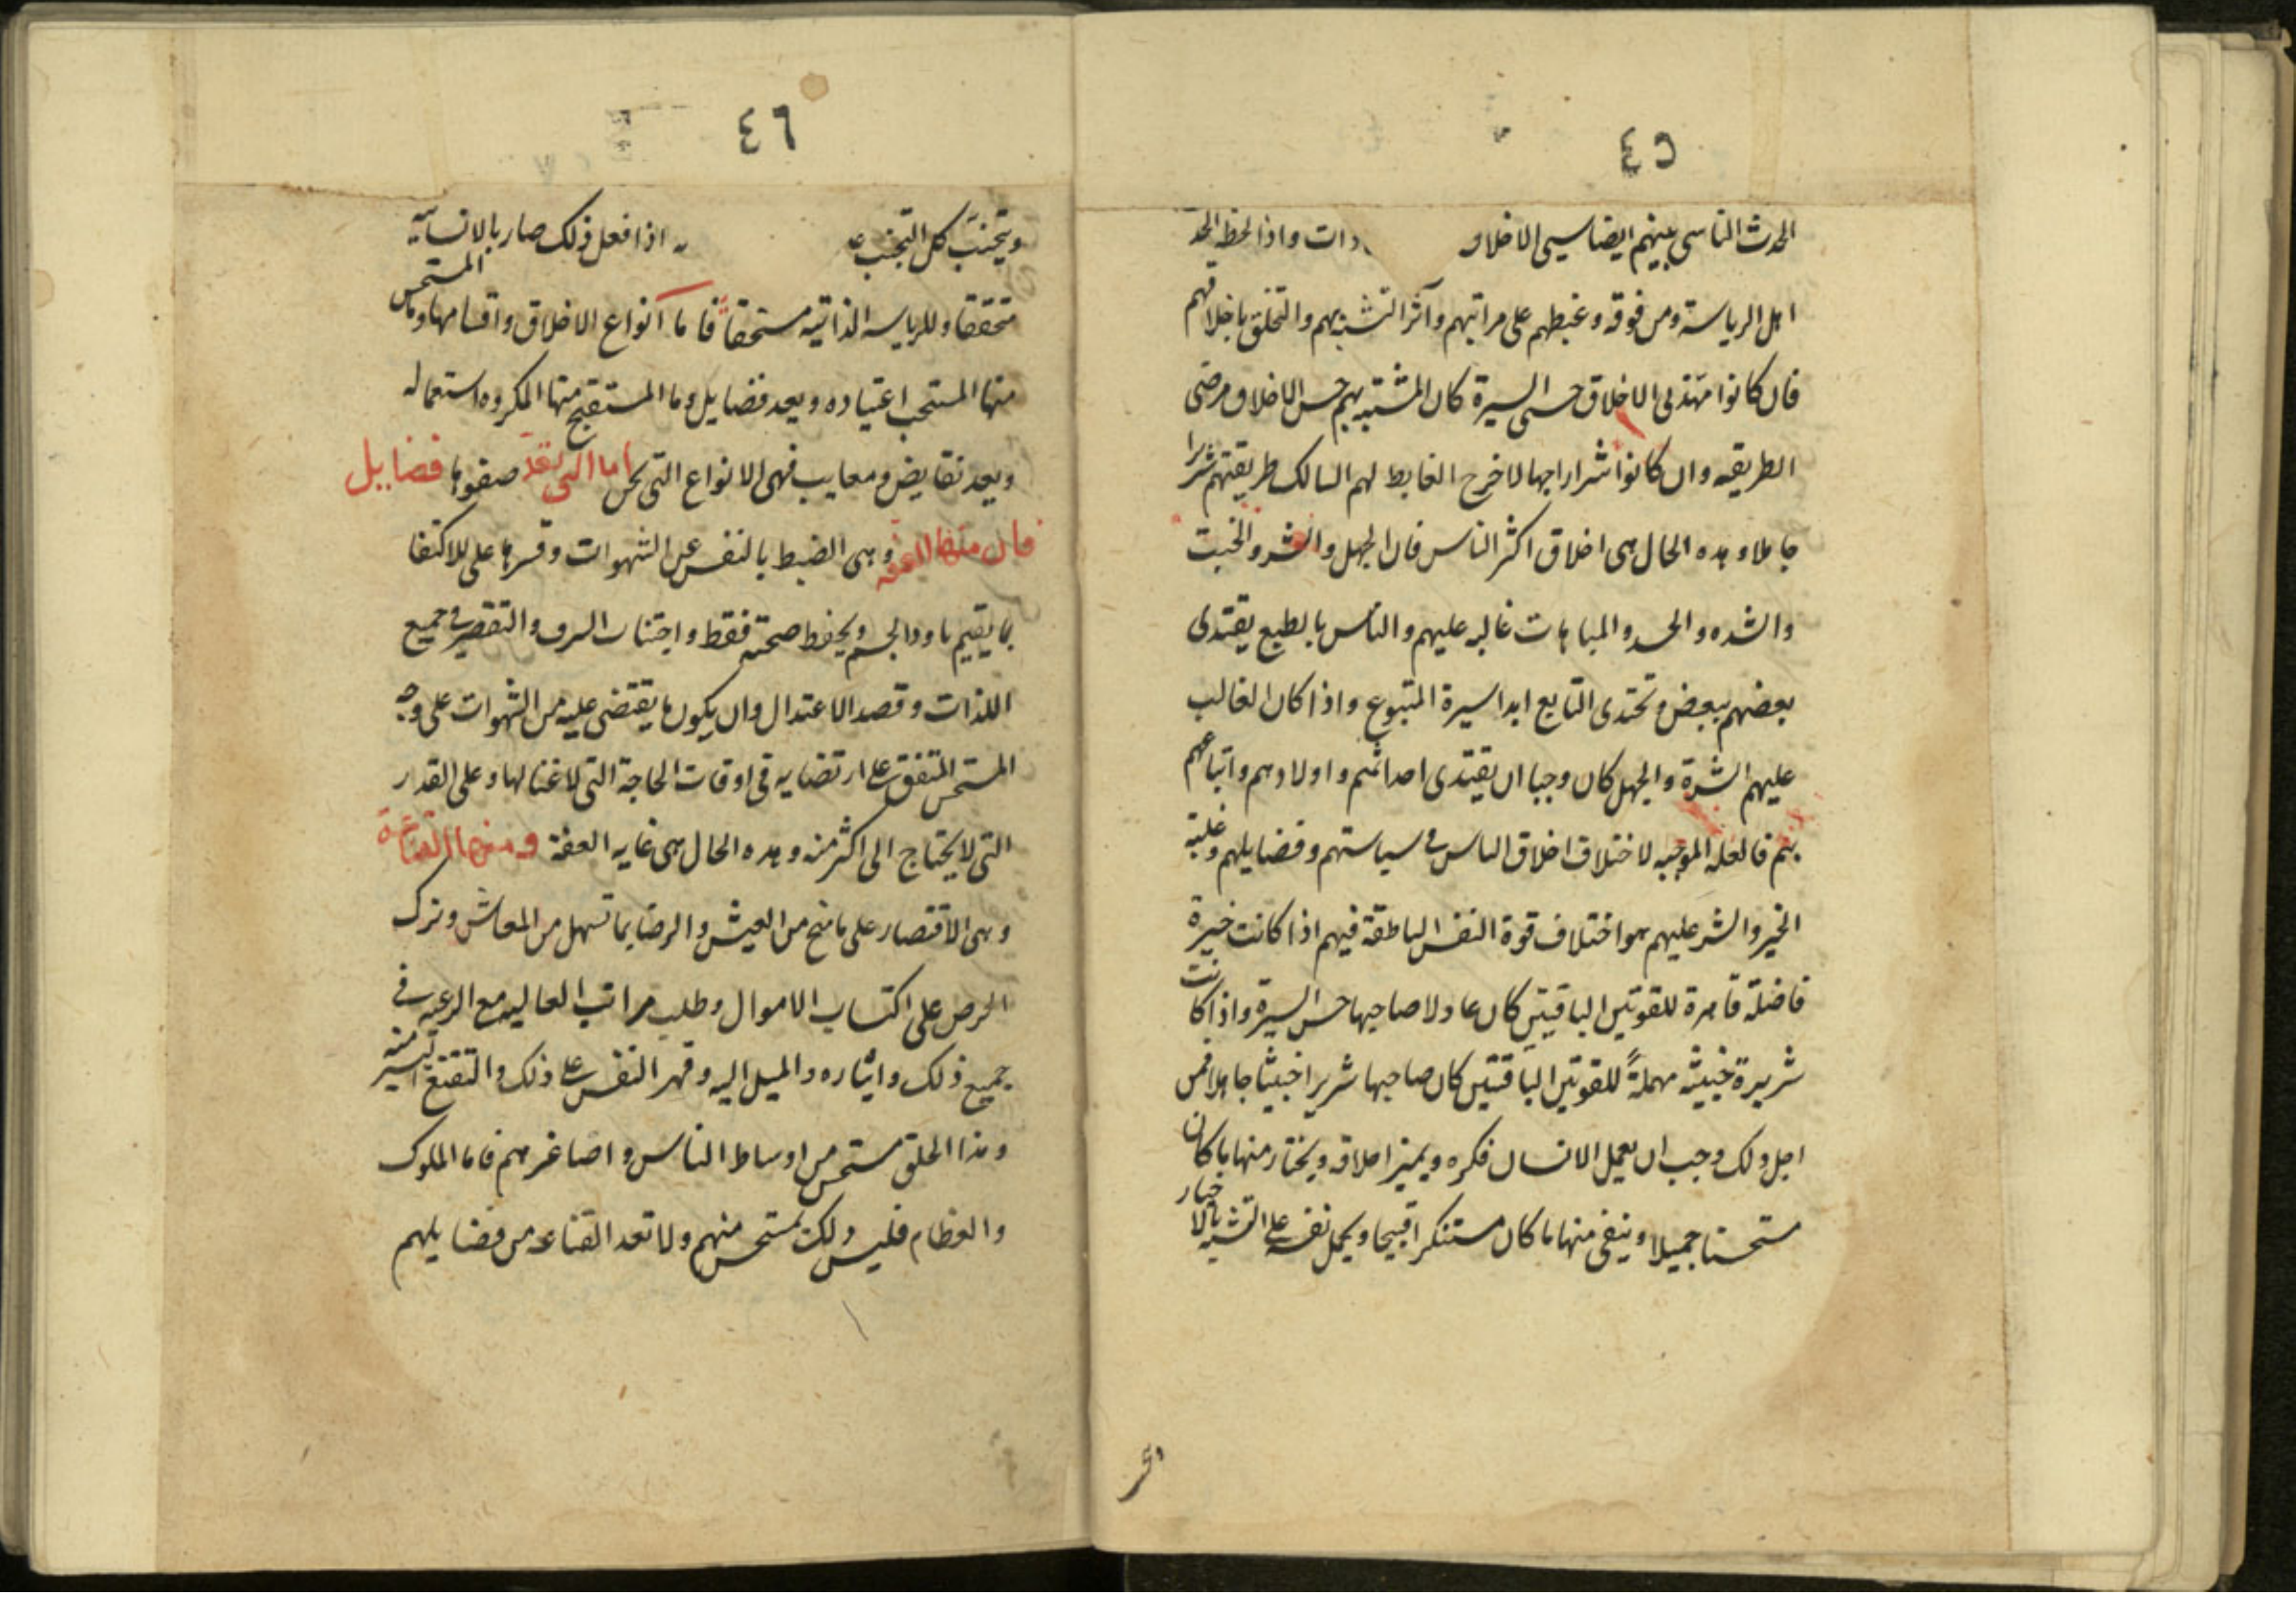 ٤٥
الحدث الناسى بينهم ايضا سيى الاخلاق دات واذا لحظ الحد
اهل الرياسة ومن فوقه وغبطهم على مراتبهم وآثر التشبه بهم والتخلق باخلاقهم
فان كانوا مهذبى الاخلاق حسنى السيرة كان المتشبه بهم حسن الاخلاق مرضى
الطريقه وان كانوا شرارا جهالا خرج الغابط لهم السالك طريقتهم شريرا
جاهلا وهذه الحال هى اخلاق اكثر الناس فان الجهل والشر والخبث
والشده والحسد والمباهات غالبه عليهم والناس بالطبع يقتدى
بعضهم ببعض وتحتذى التابع ابدا سيرة المتبوع واذا كان الغالب
عليهم الشرة والجهل كان وجبا ان يقتدى احداثهم واولادهم واتباعهم
بهم فالعله الموجبه لاختلاف اخلاق الناس فى سياستهم وفضايلهم وغلبة
الخير والشر عليهم هو اختلاف قوة النفس الناطقة فيهم اذا كانت خيرة
فاضلة قاهرة للقوتين الباقيتين كان عادلا صاحبها حسن السيرة واذا كانت
شريرة خبيثه مهملةً للقوتين الباقتين كان صاحبها شريرا خبيثا جاهلا فمن
اجل ذلك وجب ان يعمل الانسان فكره ويميز اخلاقه ويختار منها ما كان
مستحسنا جميلا وينفى منها ما كان مستنكرا قبيحا ويحمل نفسه على التشبه بالاخيار
٤٦
ويتجنب كل التجنب عه اذا فعل ذلك صار بالانسانيه
متحققا وللرياسه الذاتيه مستحقاً فاما انواع الاخلاق واقسامها وما المستحسن
منها المستحب اعتياده ويعد فضايل وما المستقبح منها المكروه استعماله
ويعد نقايض ومعايب فهى الانواع التى نحن اما التى تعد صفوها فضايل
فان منها العفه وهى الضبط بالنفس عن الشهوات وقسرها على للاكتفا
بما يقيم باود الجسم ويحفظ صحته فقط واجتناب السرف والتقصير فى جميع
اللذات وقصد الاعتدال وان يكون ما يقتضى عليه من الشهوات على وجه
المستحسن المتفق على ارتضايه فى اوقات الحاجة التى لا غنا لها وعلى القدر
التى لا يحتاج الى اكثر منه وهذه الحال هى غايه العفة ومنها القناعة
وهى الاقتصار على ما سنح من العيش والرضا بما تسهل من المعاش وترك
الحرص على اكتساب الاموال وطلب مراتب العاليه مع الرغبه فى
جميع ذلك وايثاره والميل اليه وقهر النفس على ذلك والتقنع باليسير منه
وهذا الخلق مستحسن من اوساط الناس واصاغرهم فاما الملوك
والعظام فليس ذلك بمستحسن منهم ولا تعد القناعه من فضايلهم